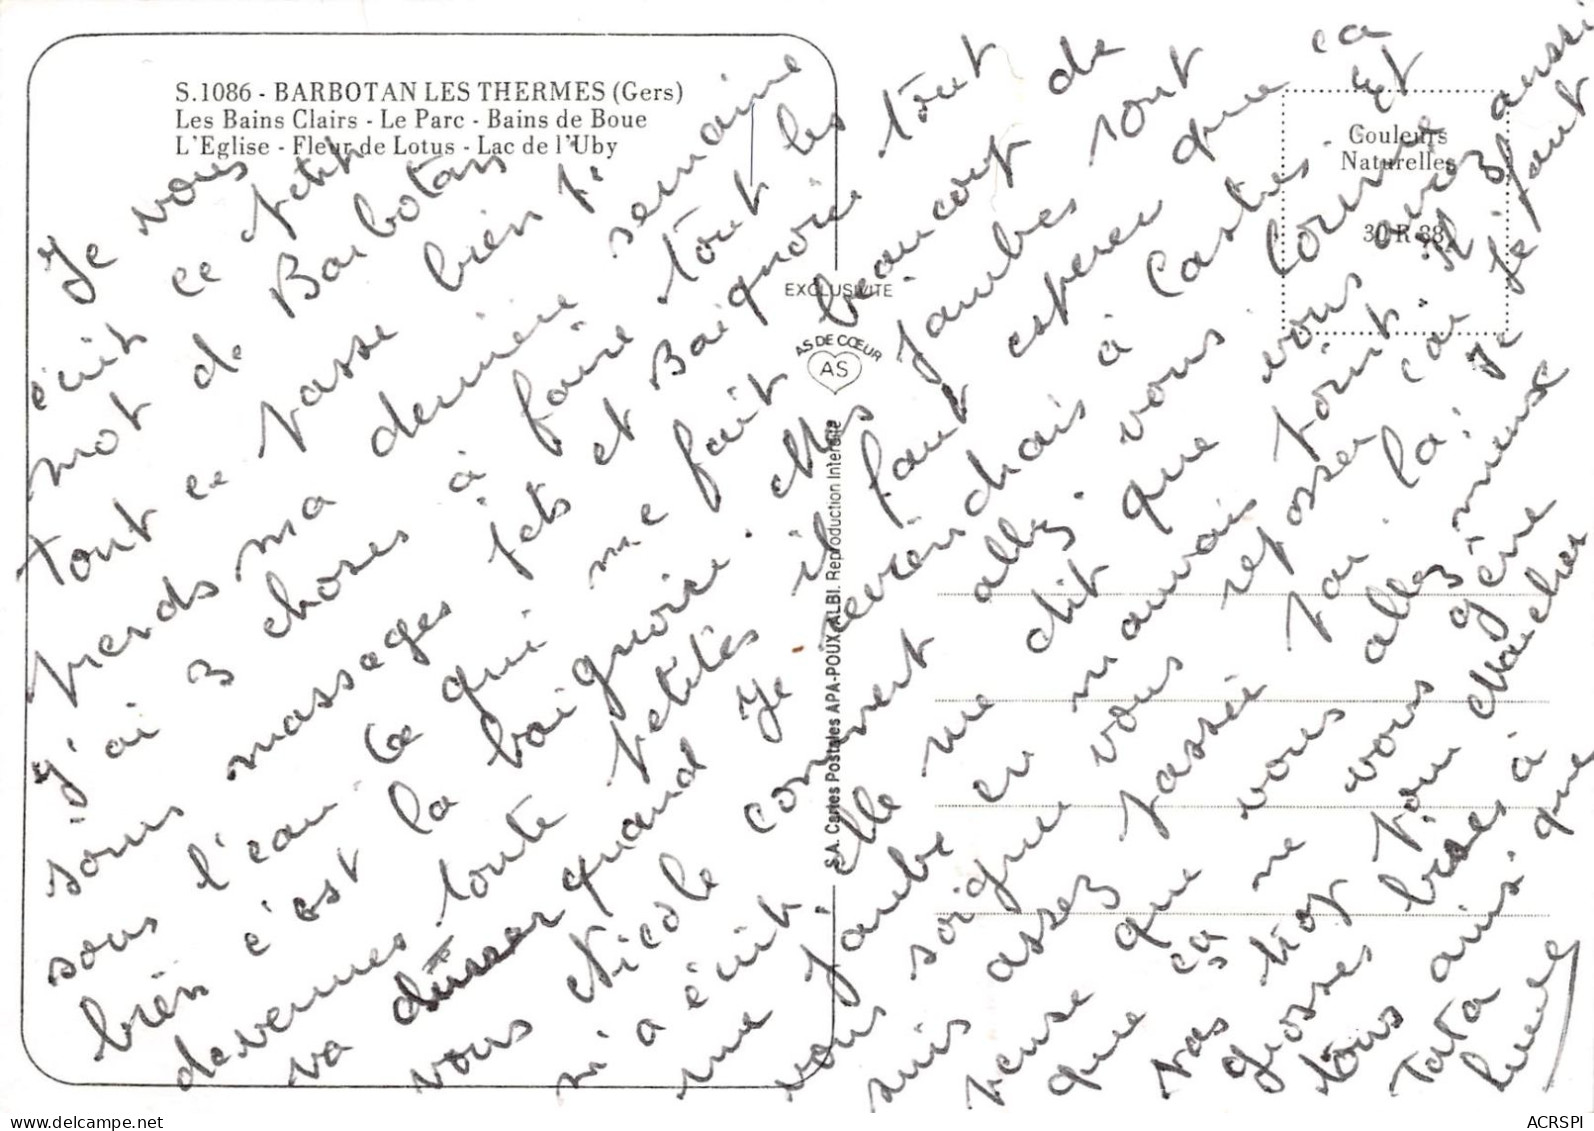 S.1086 - BARBOTAN LES THERMES (Gers)
Les Bains Clairs - Le Parc - Bains de Boue
L'Eglise - Fleur de Lotus - Lac de l'Uby
EXCLUSIVITE
AS DE CŒUR
AS
S.A. Cartes Postales APA-POUX-ALBI. Reproduction Interdite
Couleurs
Naturelles
30 R 88
Je vous
écrit ce petit
mot de Barbotan
tout ce passe bien je
prends ma dernière semaine
j'ai 3 choses à faire tout les
sous massages jets et Baignoire tout
sous l'eau Ce qui me fait beaucoup de
bien c'est la baignoire. elles jambes sont
devenues toute petites il faut esperer que ca
va durer quand Je reviendrais à Castres. Et
vous Nicole comment allez vous. Comme
m'a écrit elle me dit que vous avez aussi
une jambe en mauvais point. Il faut
vous soigner vous reposser car je
suis assez passée par la. Je
pense que vous allez mieux
que ça ne vous gêne
pas trop pour marcher
grosses bises à
tous ainsi que
Tata
ACRSPI